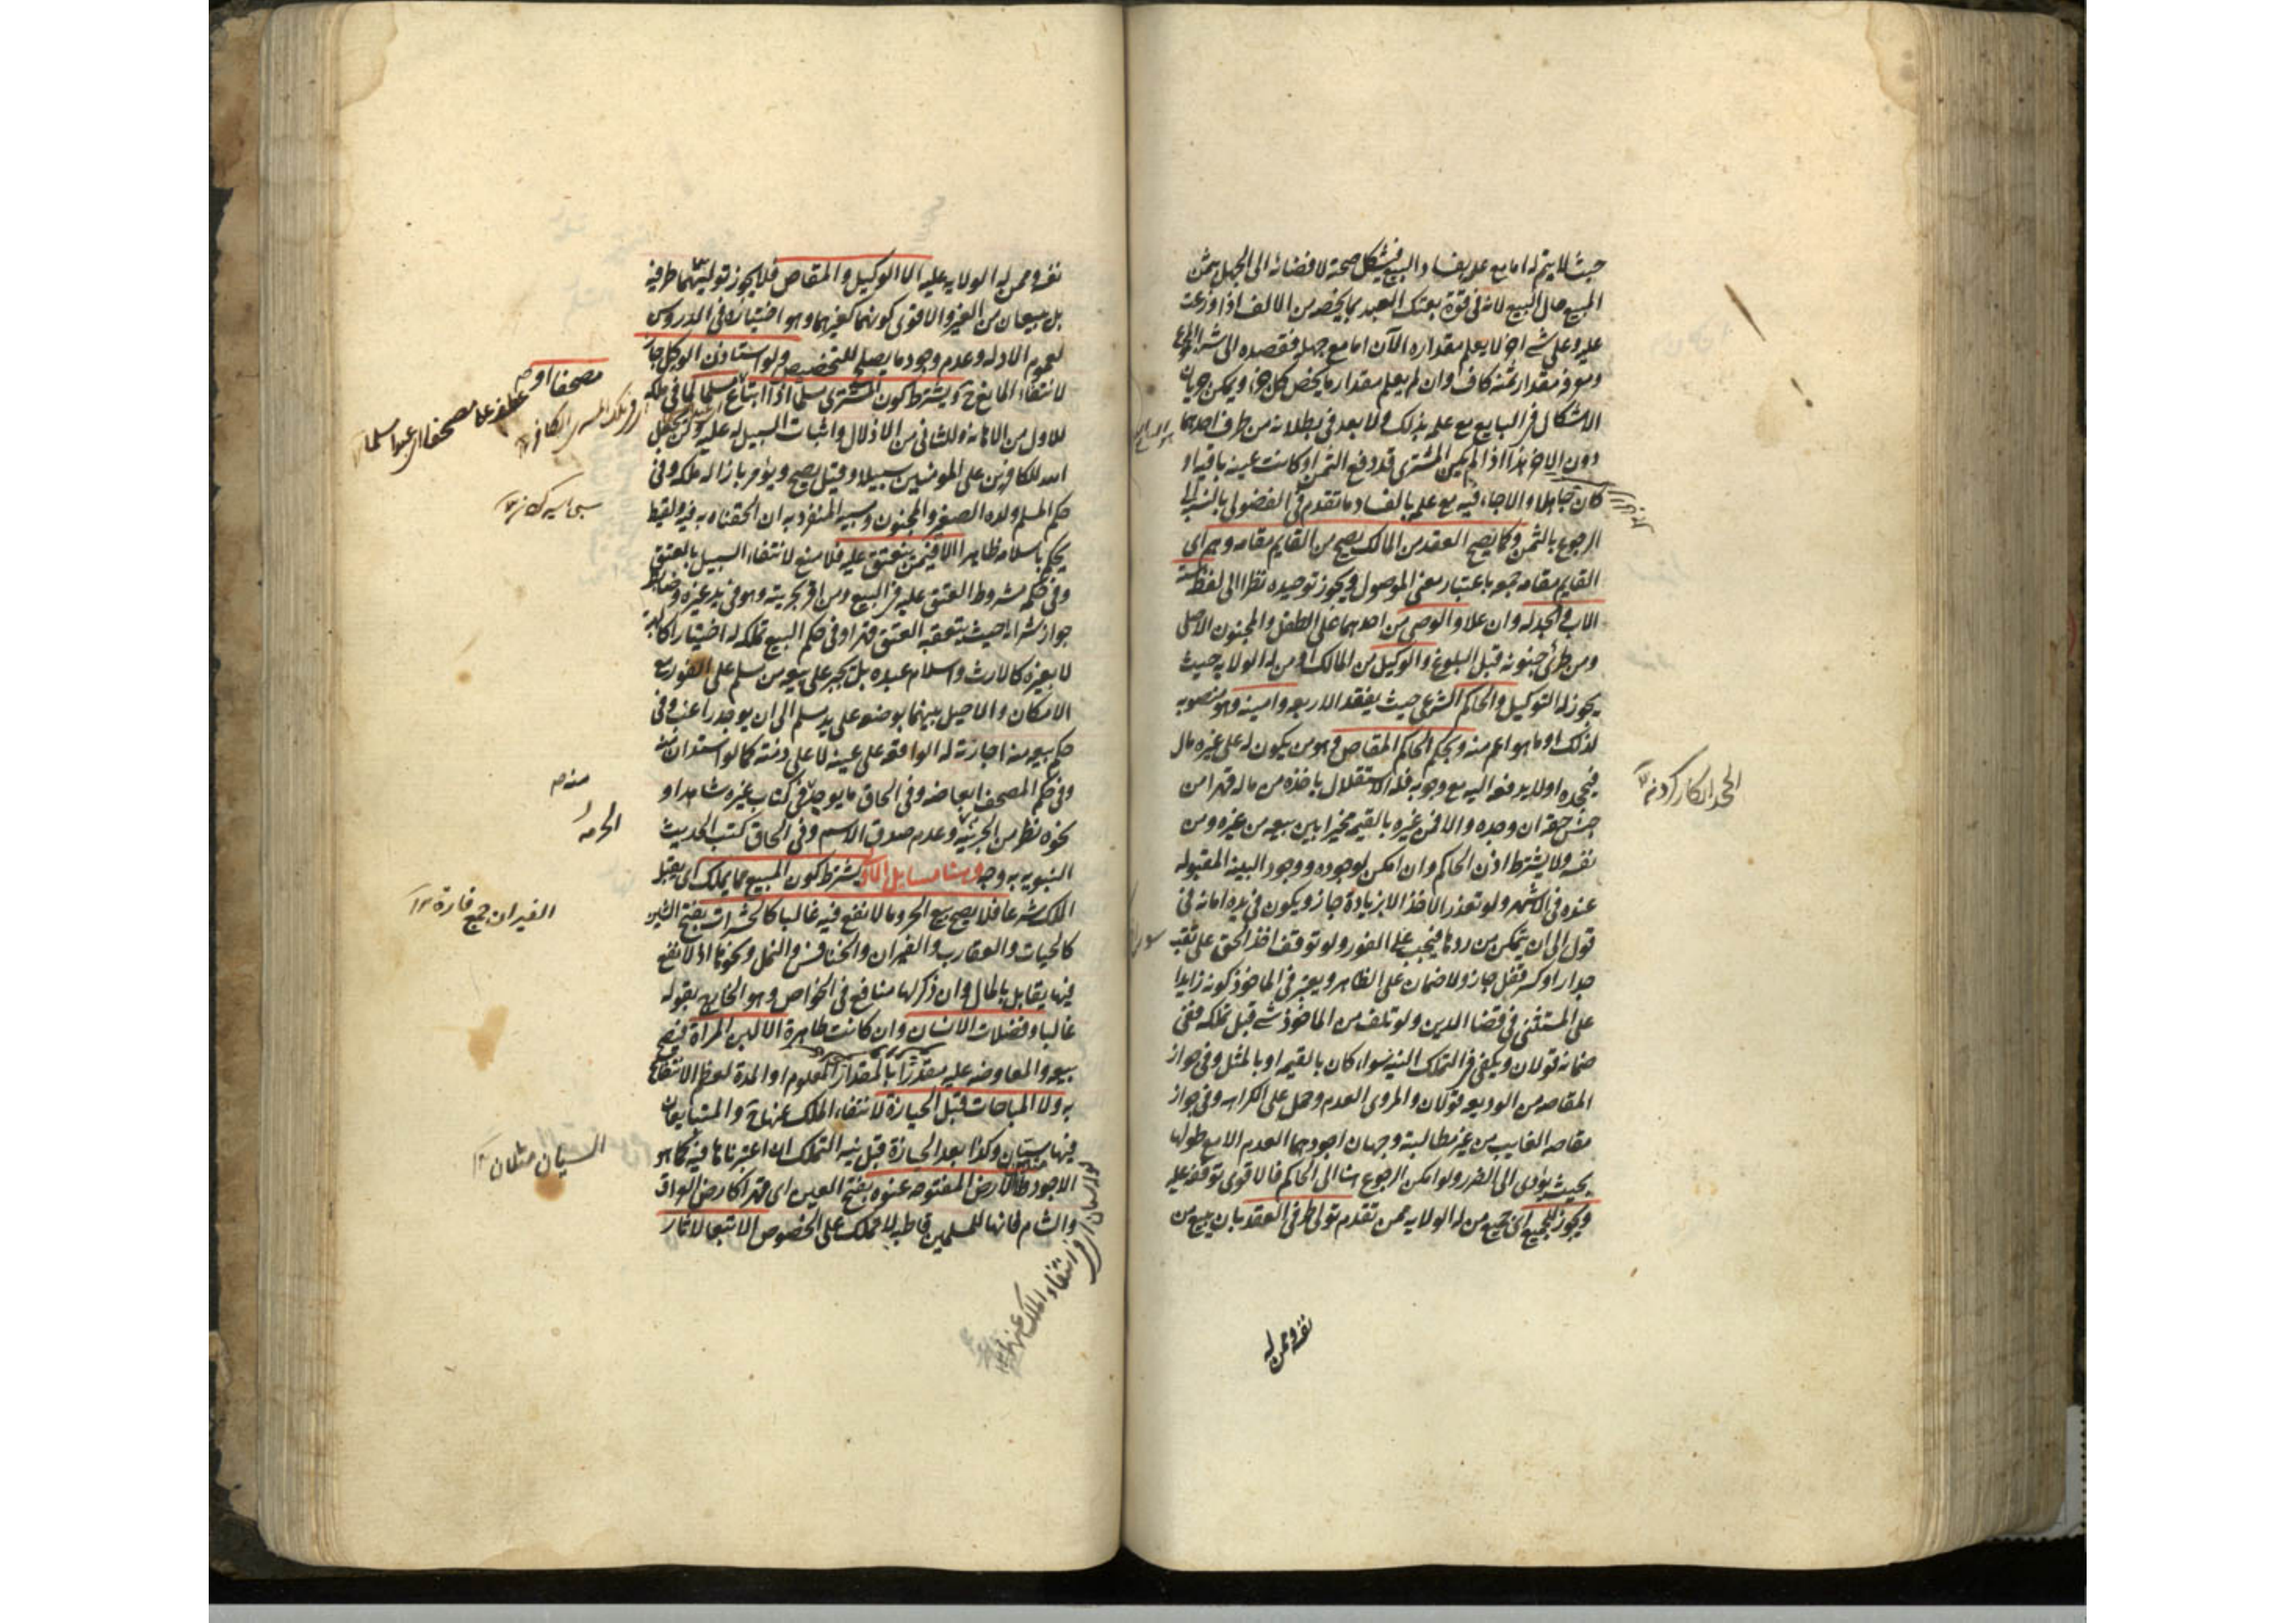 حيث لا يتم له امامع علم بفساد البيع فيشكل صحته لافضائه الى الجهل بثمن
المبيع حال البيع لانه فى قوة بعتك العبد بما يخصه من الالف اذا وزعت
عليه وعلى شى اخر لا يعلم مقداره الآن امامع جهله فقصده الى شراء المجموع
ومعرفة مقدار ثمنه كاف وان لم يعلم مقدار ما يخص كل جزء ويمكن جريان
الاشكال فى البايع مع علمه بذلك ولا بعد فى بطلانه من طرف احدهما
دون الاخر هذا اذا لم يكن المشترى قد دفع الثمن او كانت عينه باقية او
كان جاهلا والا جاء فيه مع علمه بالفساد ما تقدم فى الفضولى بالنسبة الى
الرجوع بالثمن وكما يصح العقد من المالك يصح من القايم مقامه وهم اى
القايم مقامه جمعه باعتبار معنى الموصول ويجوز توحيده نظرا الى لفظه ستة
الاب والجد له وان علا والوصى من احدهما على الطفل والمجنون الاصلى
ومن طرئ جنونه قبل البلوغ والوكيل من المالك او من له الولاية حيث
يجوز له التوكيل والحاكم الشرعى حيث يفقد الاربعة وامينه وهو منصوبه
لذلك او ما هو اعم منه وبحكم الحاكم المقاص وهو من يكون له على غيره مال
فيجحده او لا يدفعه اليه مع وجوبه فله الاستقلال باخذه من ماله قهرا من
جنس حقه ان وجده والا فمن غيره بالقيمة مخيرا بين بيعه من غيره ومن
نفسه ولا يشترط اذن الحاكم وان امكن لوجوده ووجود البينة المقبولة
عنده فى الاشهر ولو تعذر الاخذ الا بزيادة جاز ويكون فى يده امانة فى
قول الى ان يتمكن من ردها فيجب على الفور ولو توقف اخذ الحق على نقب
جدار او كسر قفل جاز ولا ضمان على الظاهر ويعتبر فى الماخوذ كونه زايدا
على المستثنى فى قضا الدين ولو تلف من الماخوذ شى قبل تملكه ففى
ضمانه قولان ويكفى فى التملك النية سواء كان بالقيمة او بالمثل وفى جواز
المقاصة من الوديعة قولان والمروى العدم وحمل على الكراهة وفى جواز
مقاصة الغايب من غير مطالبته وجهان اجودهما العدم الا مع طولها
بحيث يؤدى الى الضرر ولو امكن الرجوع هنا الى الحاكم فالاقوى توقفه عليه
ويجوز للجميع اى جميع من له الولاية ممن تقدم تولى طرفى العقد بان يبيع من
نفسه وممن له
الجحد انكار كردن
نفسه وممن له الولاية عليه الا الوكيل والمقاص فلا يجوز توليتهما طرفيه
بل يبيعان من الغير والاقوى كونهما كغيرهما وهو اختياره فى الدروس
لعموم الادلة وعدم وجود ما يصلح للتخصيص ولو استاذن الوكيل جاز
لانتفاء المانع ح ويشترط كون المشترى مسلما اذا ابتاع مسلما لما فى ملكه
للاول من الاهانة وللثانى من الاذلال واثبات السبيل له عليه ولن يجعل
الله للكافرين على المومنين سبيلا وقيل يصح ويؤمر بازالة ملكه وفى
حكم المسلم ولده الصغير والمجنون ومسبيه المنفرد به ان الحقناه به فيه ولقيط
يحكم باسلامه ظاهرا الا فيمن ينعتق عليه فلا منع لانتفاء السبيل بالعتق
وفى حكمه مشروط العتق عليه فى البيع ومن اقر بحريته وهو فى يد غيره وضابطه
جواز شرائه حيث يتعقبه العتق قهرا وفى حكم البيع تملكه له اختيارا كالهبة
لا بغيره كالارث واسلام عبده بل يجبر على بيعه من مسلم على الفور مع
الامكان والا حيل بينهما بوضعه على يد مسلم الى ان يوجد راغب وفى
حكم بيعه منه اجارته له الواقعة على عينه لا على ذمته كما لو استدان منه
وفى حكم المصحف ابعاضه وفى الحاق ما يوجد فى كتاب غيره شاهدا او
نحوه نظر من الجزئية وعدم صدق الاسم وفى الحاق كتب الحديث
النبوية به وجه وهنا مسايل الاولى يشترط كون المبيع مما يملك اى يقبل
الملك شرعا فلا يصح بيع الحر وما لا نفع فيه غالبا كالحشرات بفتح الشين
كالحيات والعقارب والفيران والخنافس والنمل ونحوها اذ لا نفع
فيها يقابل بالمال وان ذكر لها منافع فى الخواص وهو الخارج بقوله
غالبا وفضلات الانسان وان كانت طاهرة الا لبن المراة فيصح
بيعه والمعاوضة عليه مقدرا بالمقدار المعلوم او المدة لعظم الانتفاع
به ولا المباحات قبل الحيازة لانتفاء الملك عنها ح والمتبايعان
فيها سيان وكذا بعد الحيازة قبل نية التملك ان اعتبرناها فيه كما هو
الاجود ولا الارض المفتوحة عنوة بفتح العين اى قهرا كارض العراق
والشام لانها للمسلمين قاطبة لا تملك على الخصوص الا تبعا لاثار
مصحفا او
منه
الحرمة
الفيران جمع فارة
السيان مثلان